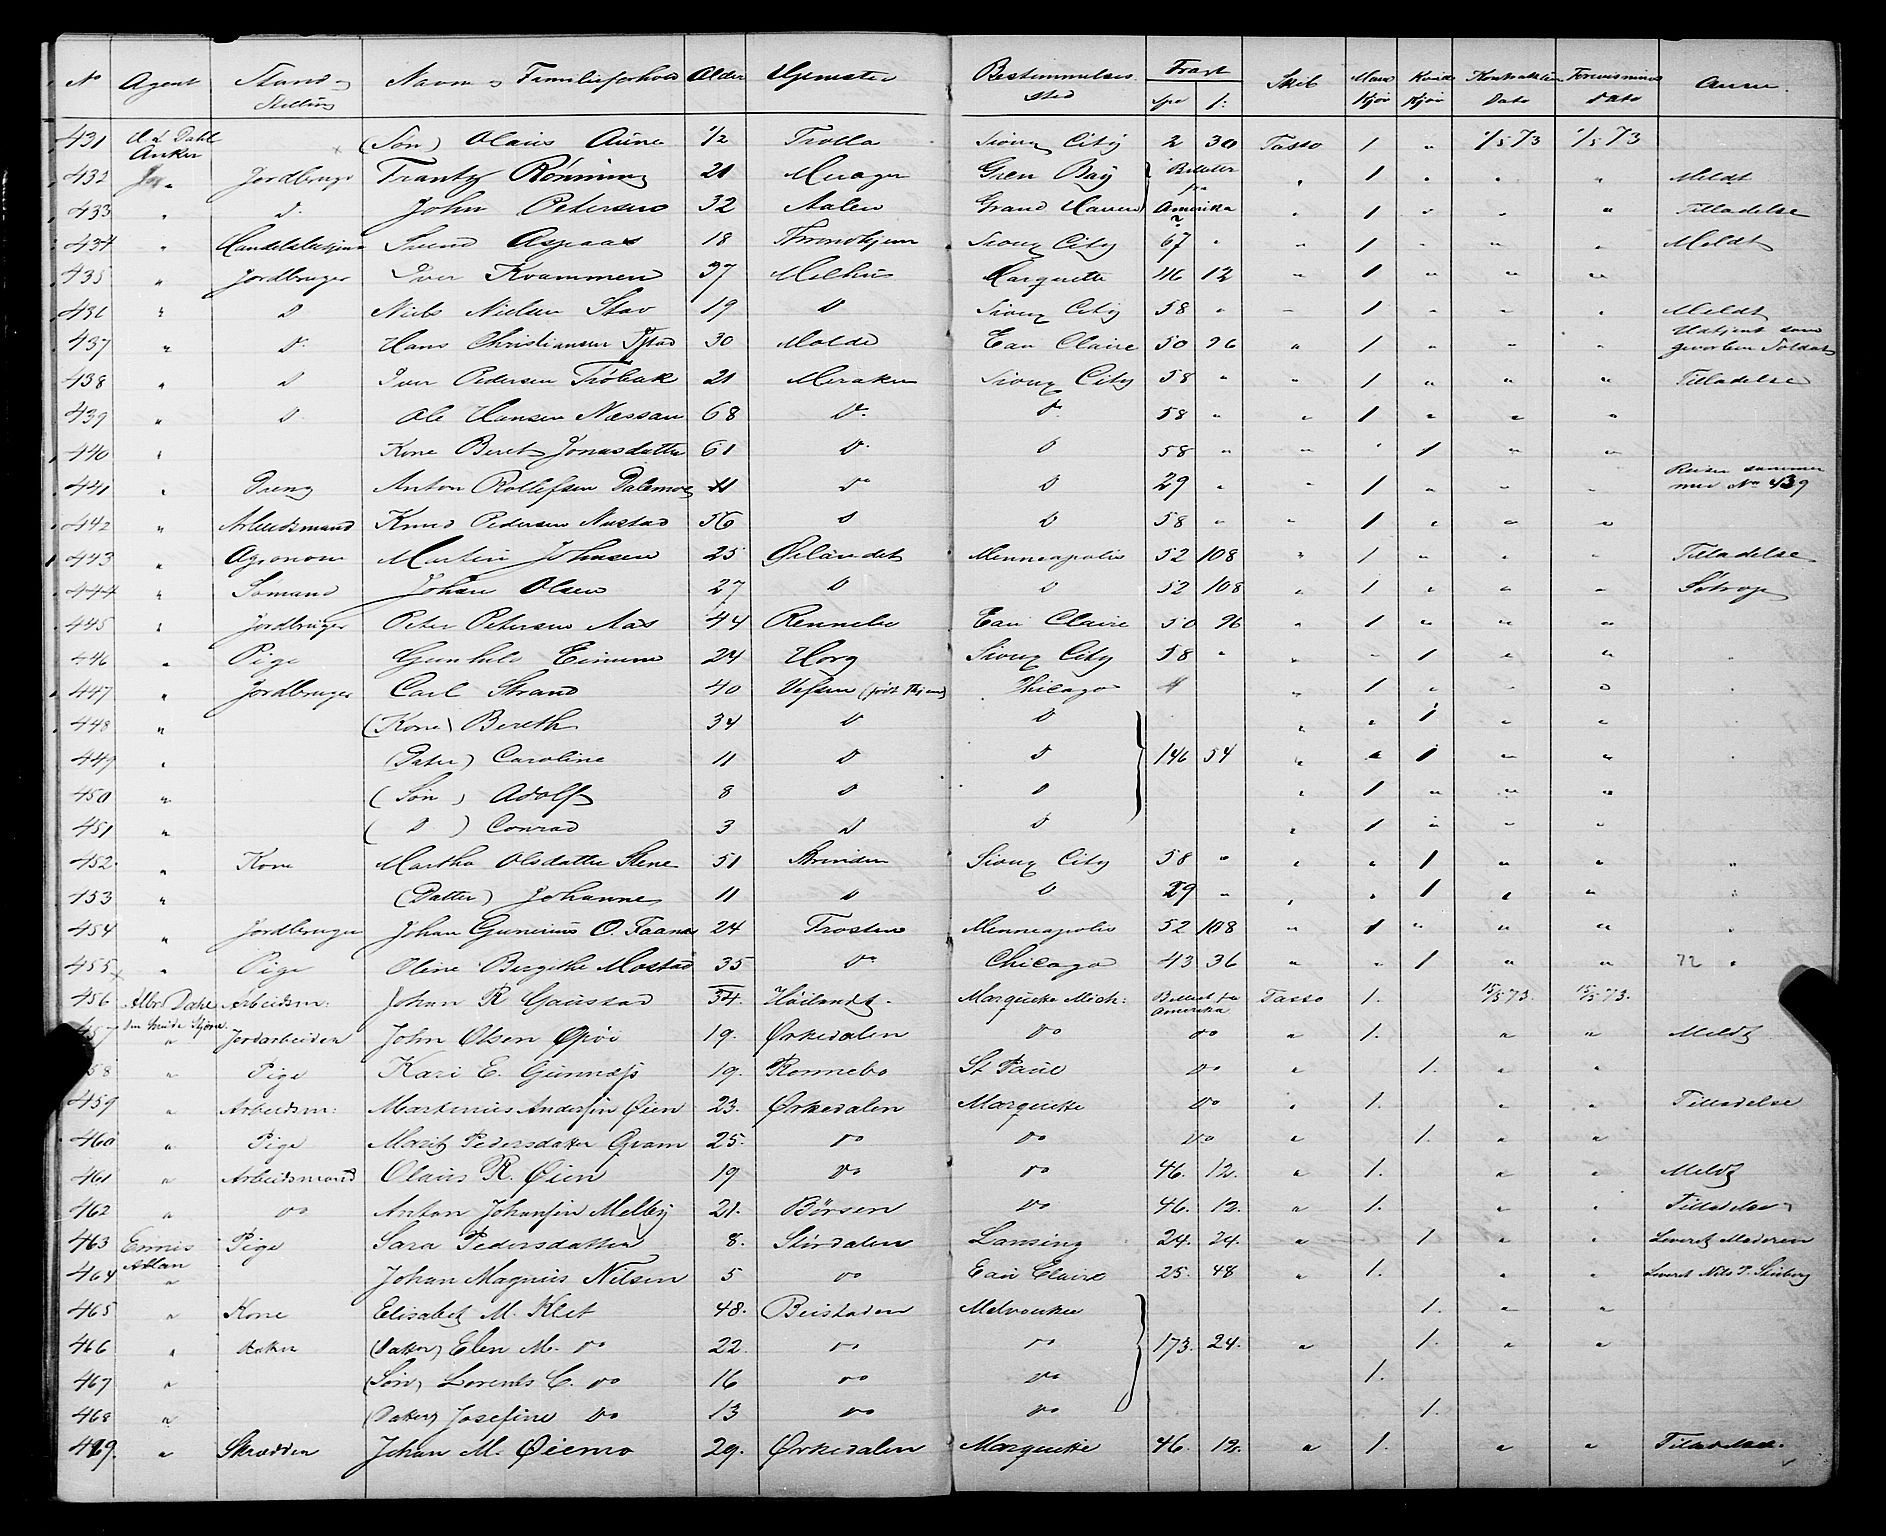 No Agent Stand og Stilling Navn og Familieforhold Alder Hjemsted Bestemmelsessted Fragt Spd ß: Skib Mandkjøn Kvindkjøn Kontraktens Dato Forevisnings Dato Anm.
431 A d Dahl Anker (Søn) Olaus Aune 1/2 Trolla Sioux City 2 30 Tasso 1 " 1/5 73 1/5 73
432 " Jordbruger Frantz Rønning 21 Merager Green Bay Billetter fra " 1 " " " Meldt
433 " D. John Petersen 32 Aalen Grand Haven Amerika " 1 " " " Tilladelse
434 " Svend Aspaas 18 Throndhjem Sioux City 67 " " 1 " " " Meldt
435 " Jordbruger Iver Kvammen 37 Melhus Marquette 46 12 " 1 " "
436 " D Niels Nielsen Stav 19 D Sioux City 58 " " 1 " " " Meldt
437 " D. Hans Christiansen 30 Molde Eau Claire 50 96 " 1 " " " Udtjent som gevorben Soldat
438 " D Iver Pedersen Trøbak 21 Meraker Sioux City 58 " " 1 " " " Tilladelse
439 " D Ole Hansen Næssan 68 D. D. 58 " " 1 " " "
440 " Kone Beret Jonasdatter 61 D. D 58 " " " 1 " "
441 " Dreng Anton Rollefsen Dalemoe 11 Do D 29 " " 1 " " " Reiser sammen med No 439
442 " Arbeidsmand Knud Pedersen Nustad 56 D D 58 " " 1 " " "
443 " Agronom Martin Johnsen 25 Ørlandet Minneapolis 52 108 " 1 " " " Tilladelse
444 " Sømand Johan Olsen 27 D D 52 108 " 1 " " "
445 " Jordbruger Peter Petersen Aas 44 Rennebu Eau Claire 50 96 " 1 " " "
446 " Pige Gunhild Eimme 24 Horg Sioux City 58 " " " 1 " "
447 " Jordbruger Carl Strand 40 Vefsen (født Thjem) Chicago " 1 " " "
448 " (Kone) Bereth 34 D D " " 1 " "
449 " (Datter) Caroline 11 D D 146 54 " " 1 " "
450 " (Søn) Adolf 8 D D " 1 " " "
451 " (D) Conrad 3 D D " 1 " " "
452 " Kone Martha Olsdatter Stene 51 Strinden Sioux City 58 " " " 1 " "
453 " (Datter) Johanne 11 D D 29 " " " 1 " "
454 " Jordbruger Johan Gunerius O. Faanes 24 Frosten Minneapolis 52 108 " 1 " " "
455 " Pige Oline Bergithe Mostad 35 Do Chicago 43 36 " " 1 " " 72
456 Albr. Dahl Arbeidsm: Johan R Gaustad 34. Høilandt. Marquette Mich: Billet fra Amerika Tasso 1. 15/5 73. 15/5 73.
457 " Jordarbeider John Olsen Opøi 19. Ørkedalen do do " 1. " " Meldt
458 " Pige Kari E. Gunnæss 19. Rennebo St Paul do " 1. " "
459 " Arbeidsm: Martinius Andersen Øien 23. Ørkedalen Marquette do " 1. " " Tilladelse
460 " Pige Marit Pedersdatter Qvam 25. do do do " 1. " "
461 " Arbeidsmand Olaus R. Øien 19 do do 46. 12. " 1. " " Meldt
462 " do Anton Johansen Melby 21. Børsen do 46. 12. " 1. " " Tilladelse
463 Ennis Pige Sara Pedersdatter 8. Størdalen Lansing 24. 24. " 1 " " Leveret Moderen
464 Allan " Johan Magnus Nilsen 5 do Eau Claire 25. 48 " 1. " " Leveret Nils P.
465 " Kone Elisabet M. Klet 48. Beistaden Melvoukee 1. " "
466 " datter (datter) Elen M. do 22. do do 173. 24. " 1. " "
467 " (Søn) Lorents C. do 16 do do 1.
468 " (Datter) Josefine do 13 do do 1.
469. " Skrædder Johan M. Øiemo 29. Ørkedalen Marquette 46. 12. " 1. " " Tilladelse.